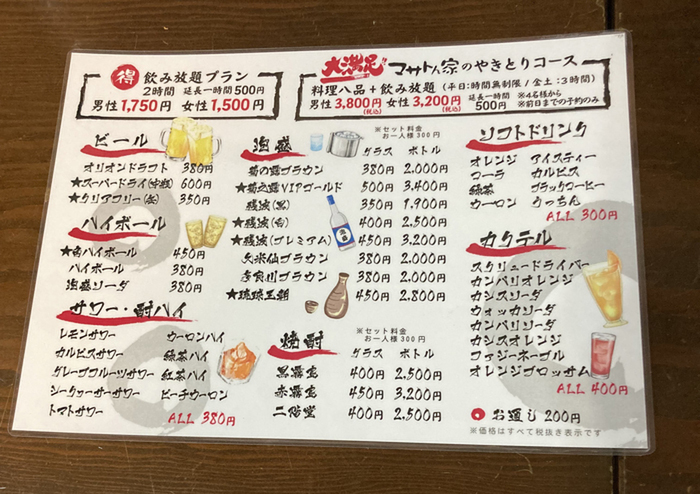 得 飲み放題プラン
2時間 延長一時間500円
男性1,750円 女性1,500円
大満足!! マサトん家のやきとりコース
料理八品+飲み放題(平日:時間無制限/金土:3時間)
男性3,800円(税込) 女性3,200円(税込) 延長一時間500円 ※4名様から ※前日までの予約のみ
ビール
オリオンドラフト 380円
★スーパードライ(中瓶) 600円
★クリアフリー(缶) 350円
ハイボール
★角ハイボール 450円
ハイボール 380円
泡盛ソーダ 380円
サワー・酎ハイ
レモンサワー ウーロンハイ
カルピスサワー 緑茶ハイ
グレープフルーツサワー 紅茶ハイ
シークヮーサーサワー ピーチウーロン
トマトサワー ALL 380円
泡盛
※セット料金 お一人様300円
グラス ボトル
菊の露ブラウン 380円 2,000円
★菊之露VIPゴールド 500円 3,400円
残波(黒) 350円 1,900円
★残波(白) 400円 2,500円
★残波(プレミアム) 450円 3,200円
久米仙ブラウン 380円 2,000円
多良川ブラウン 380円 2,000円
★琉球王朝 450円 2,800円
焼酎
※セット料金 お一人様300円
グラス ボトル
黒霧島 400円 2,500円
赤霧島 450円 3,200円
二階堂 400円 2,500円
ソフトドリンク
オレンジ アイスティー
コーラ カルピス
緑茶 ブラックコーヒー
ウーロン うっちん
ALL 300円
カクテル
スクリュードライバー
カンパリオレンジ
カシスソーダ
ウォッカソーダ
カンパリソーダ
カシスオレンジ
ファジーネーブル
オレンジブロッサム
ALL 400円
お通し 200円
※価格はすべて税抜き表示です